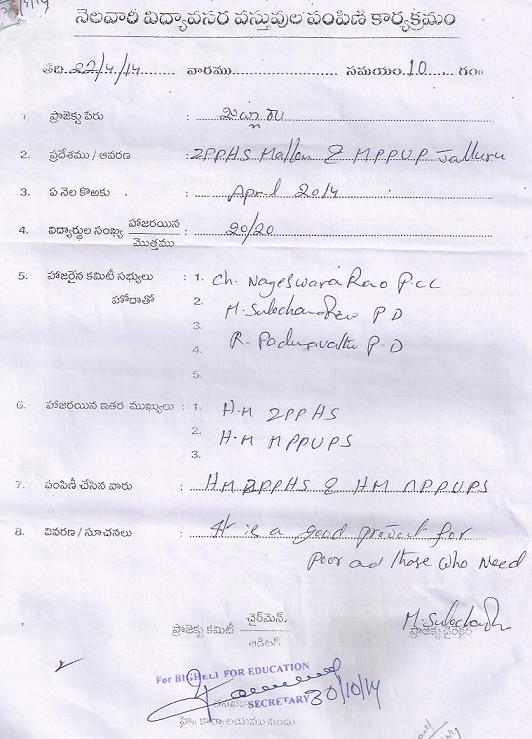 నెలవారీ విద్యావసర వస్తువుల పంపిణి కార్యక్రమం
తేది 22/4/14 వారము సమయం 10 గం॥
1 ప్రాజెక్టు పేరు :
2. ప్రదేశము / ఆవరణ : ZPPHS Mallam & MPPUP Jalluru
3. ఏ నెల కొఱకు : April 2014
4. విద్యార్థుల సంఖ్య హాజరయిన / మొత్తము : 20/20
5. హాజరైన కమిటీ సభ్యులు : 1. Ch. Nageswara Rao P.CC
హోదాతో 2. M. Sulochana P D
3. R. Padmavathi P.D
4.
5.
6. హాజరయిన ఇతర ముఖ్యులు : 1. H.M ZPPHS
2. H.M MPPUPS
3.
7. పంపిణీ చేసిన వారు : HM ZPPHS & HM MPPUPS
8. వివరణ / సూచనలు : It is a good project for
poor ad those who Need
ప్రాజెక్టు కమిటీ ఛైర్‌మెన్. / ఆడిటర్
M. Sulochana
ప్రాజెక్టు డైరెక్టర్
For BIGHELP FOR EDUCATION
SECRETARY 30/10/14